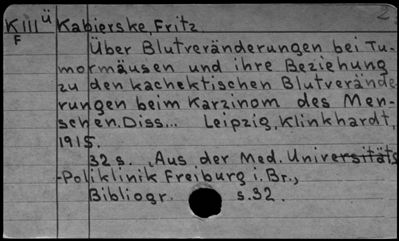 2
K III ü Kabierske, Fritz.
F
Über Blutveränderungen bei Tu-
mormäusen und ihre Beziehung
zu den kachektischen Blutverände-
rungen beim Karzinom des Men-
schen. Diss... Leipzig, Klinkhardt,
1915.
32 s. „Aus der Med. Universitäts
-Poliklinik Freiburg i. Br.,
Bibliogr. s. 32.